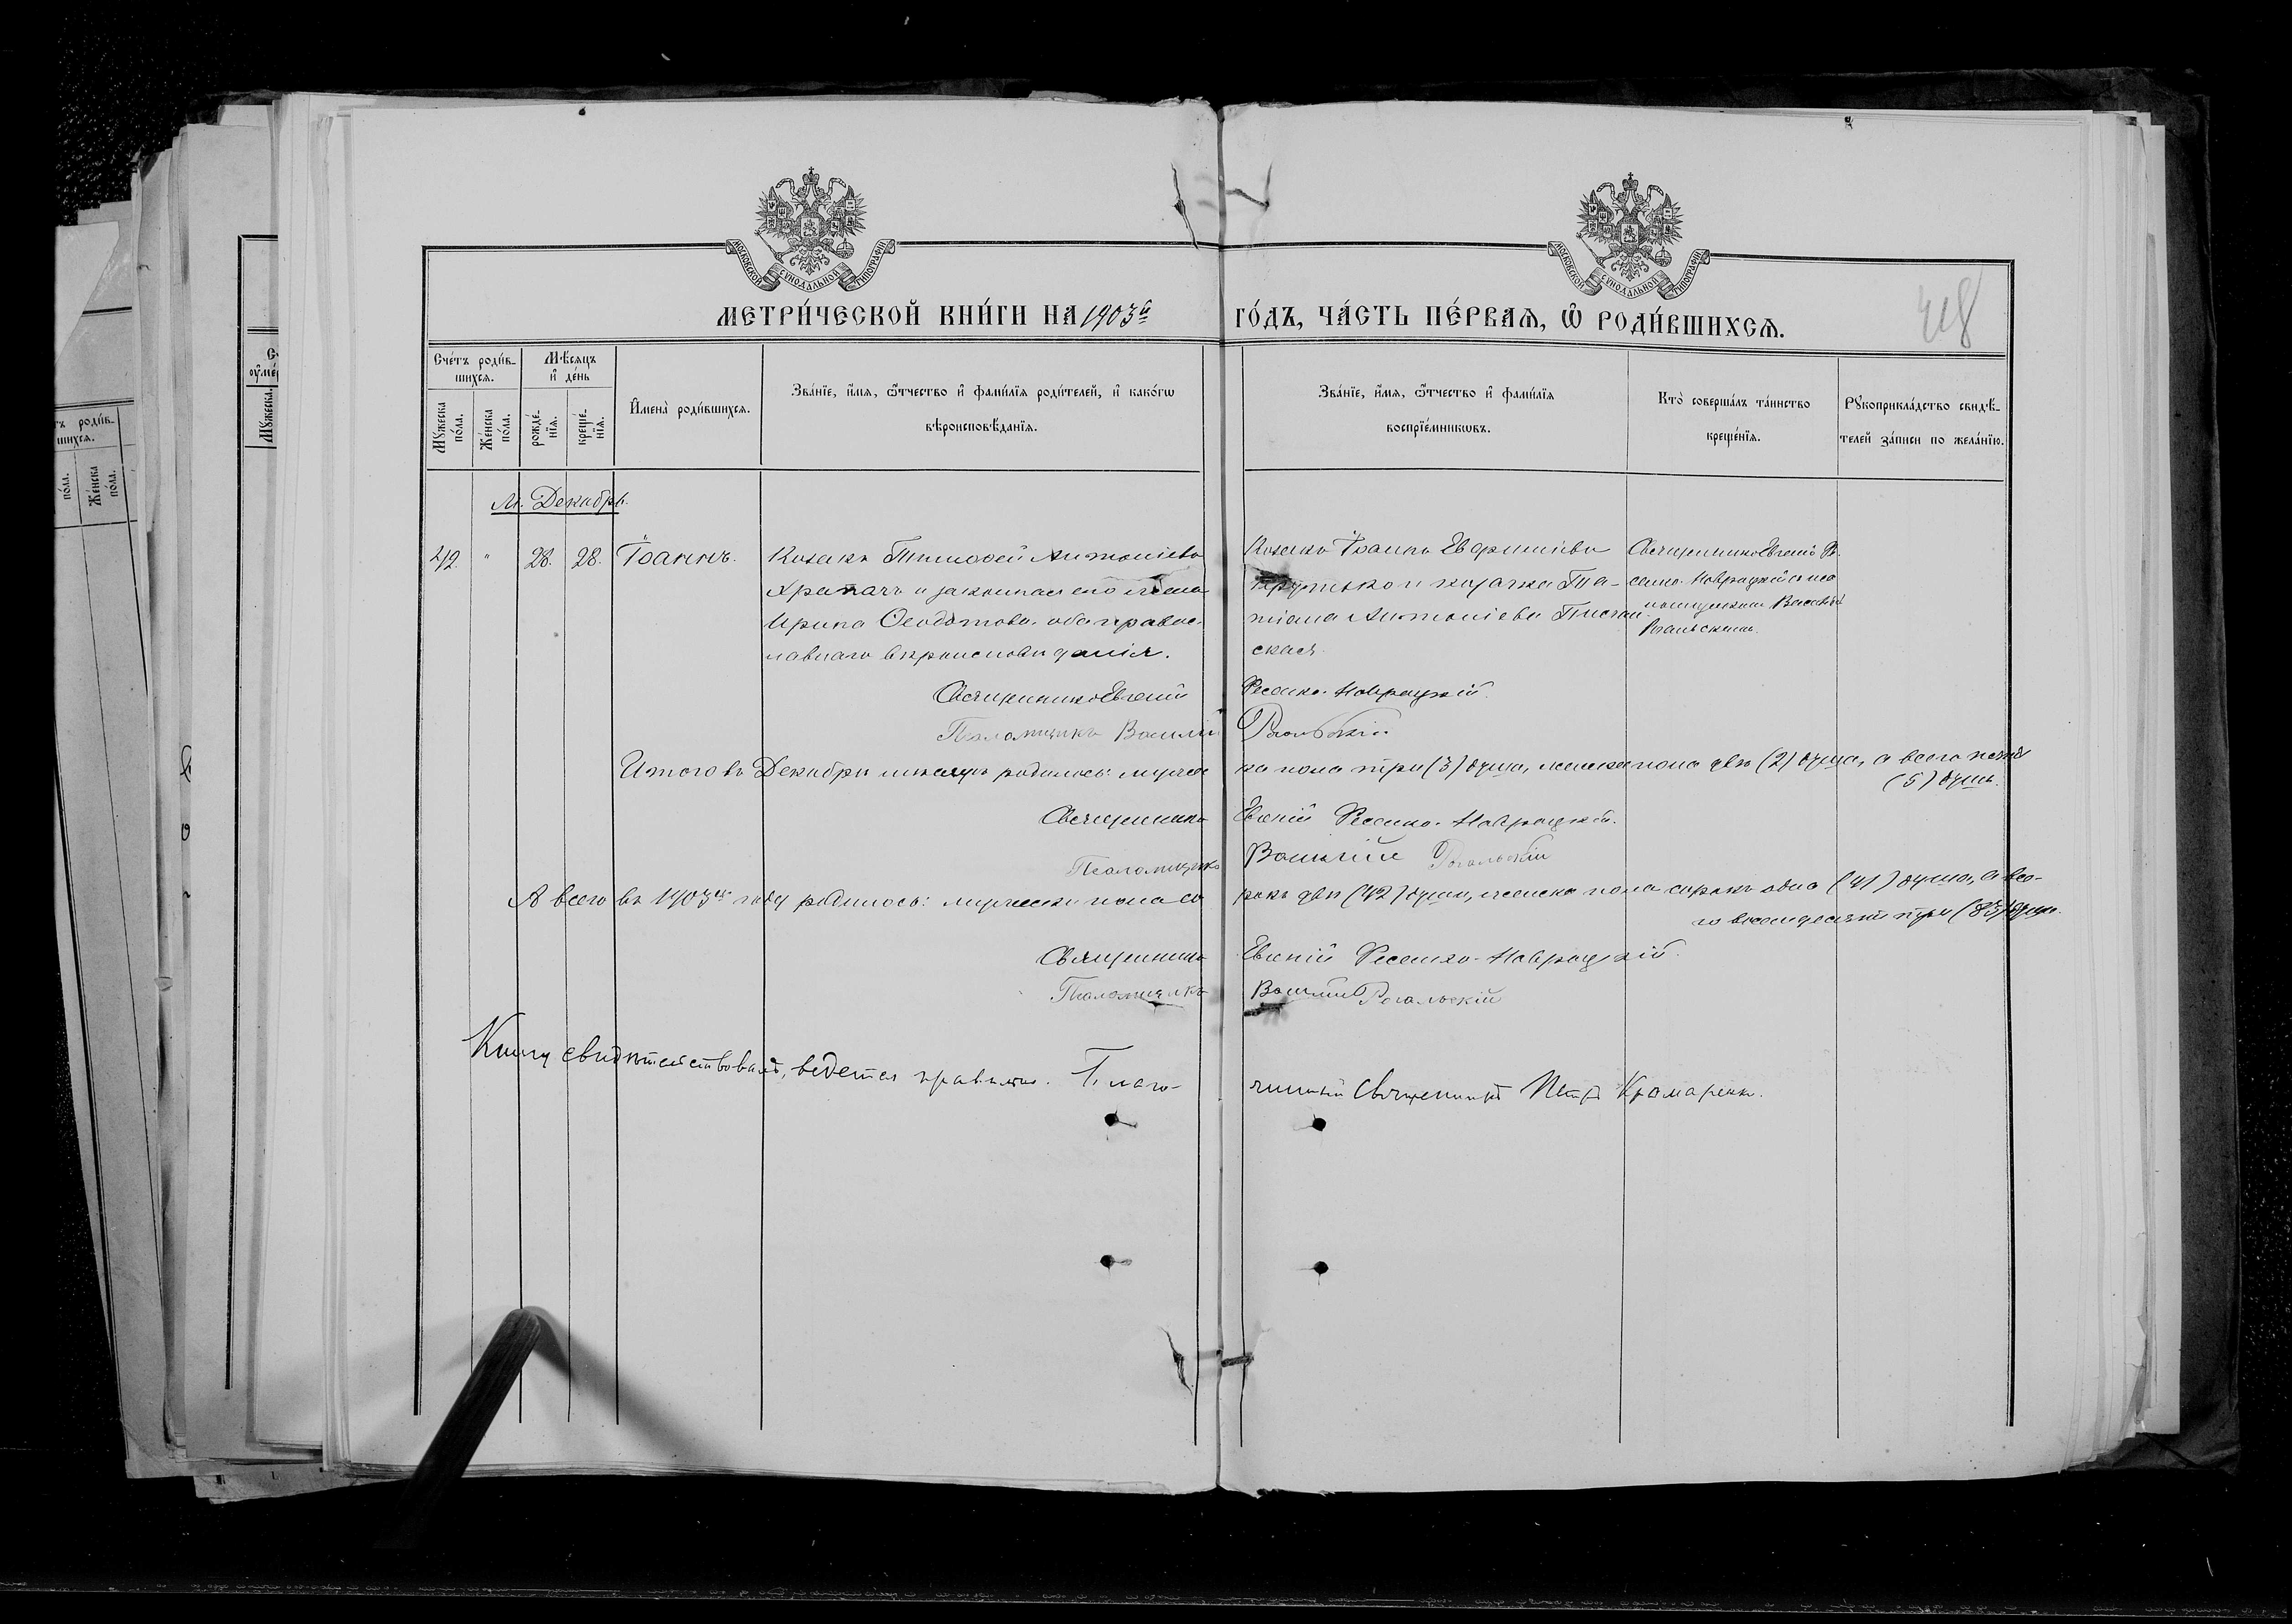 МОСКОВСКОЙ СУНОДАЛЬНОЙ ТИПОГРАФІИ
МОСКОВСКОЙ СУНОДАЛЬНОЙ ТИПОГРАФІИ
МЕТРИ́ЧЕСКОЙ КНИ́ГИ НА 1903й ГО́ДЪ, ЧА́СТЬ ПЕ́РВАЯ, Ѡ РОДИ́ВШИХСЯ.
418
Сче́тъ роди́в-
шихся.
Мѣ́сяцъ
и҆ де́нь
Мꙋ́жеска
по́ла.
Же́нска
по́ла.
рожде́-
нїя.
креще́-
нїя.
И҆мена̀ роди́вшихся.
Зва́нїе, и҆́мя, ѻ҆́тчество и҆ фами́лїя роди́телей, и҆ како́гѡ
вѣроисповѣ́данїя.
Зва́нїе, и҆́мя, ѻ҆́тчество и҆ фами́лїя
воспрїе́мникѡвъ.
Кто̀ соверша́лъ та́инство
креще́нїя.
Рꙋкоприкла́дство свидѣ́-
телей за́писи по жела́нїю.
М. Декабрь.
42. " 28. 28. Іоаннъ.
Козакъ Тимофей Антоніевъ
Храпачъ и законная его жена
Ирина Ѳеодотова, оба правос-
лавнаго вѣроисповѣданія.
Козакъ Іоаннъ
и козачка Та-
тіана Антоніева
ская.
Священникъ Евгеній Ѳе-
сенко-Навроцкій съ пса-
ломщикомъ Василіемъ
Рогальскимъ.
Священникъ Евгеній Ѳесенко-Навроцкій.
Псаломщикъ Василій Рогальскій
Итого въ Декабрѣ мѣсяцѣ родилось: мужеска пола три (3) душа, женска пола двѣ (2) душа, а всего пять
(5) душъ.
Священникъ Евгеній Ѳесенко-Навроцкій.
Псаломщикъ Василій Рогальскій
А всего въ 1903мъ году родилось: мужеска пола сорокъ двѣ (42) душа, женска пола сорокъ одна (41) душа, а все-
го восемдесятъ три (83) души.
Священникъ Евгеній Ѳесенко-Навроцкій.
Псаломщикъ Василій Рогальскій
Книгу свидѣтельствовалъ, ведется правильно. Благо-
чинный Священникъ Петръ Крамаренко.